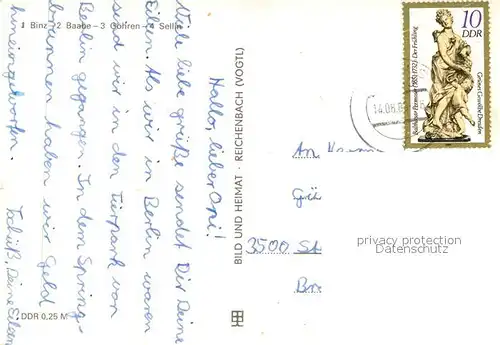 1 Binz - 2 Baabe - 3 Göhren - 4 Sellin
Hallo, lieber Opi!
Viele liebe grüße sendet Dir Deine
Eileen. Als wir in Berlin waren
sind wir in den Tierpark von
Berlin gegangen. In dem Spring-
brunnen haben wir Geld
hineingeworfen.
Tschüß, Deine Eileen
DDR 0,25 M
BILD UND HEIMAT · REICHENBACH (VOGTL)
10
DDR
Balthasar Permoser (1651-1732) · Der Frühling
Grünes Gewölbe Dresden
14.08.8
An
3500 St
privacy protection
Datenschutz